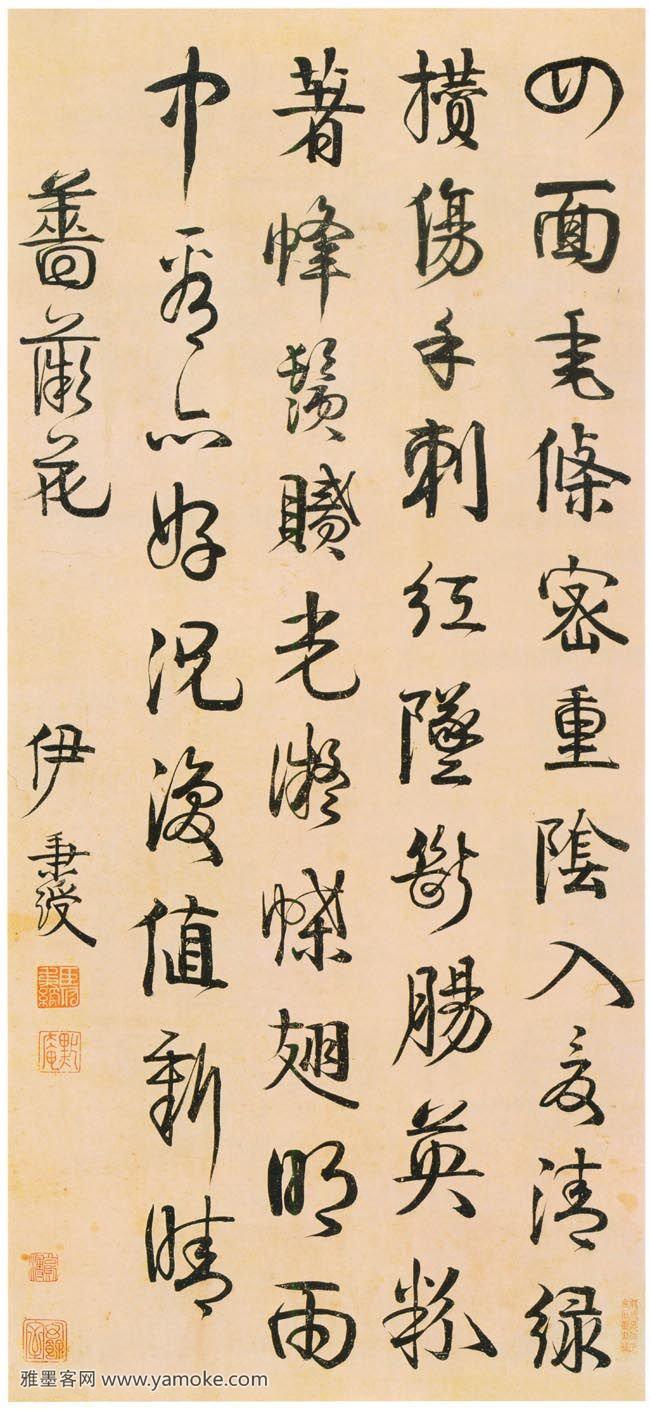 四面垂條密重陰入夏清緑
攢傷手刺紅墜斷腸英粉
著蜂鬚膩光凝蝶翅明雨
中看亦好況復值新晴
薔薇花
伊秉綬
雅墨客网 www.yamoke.com